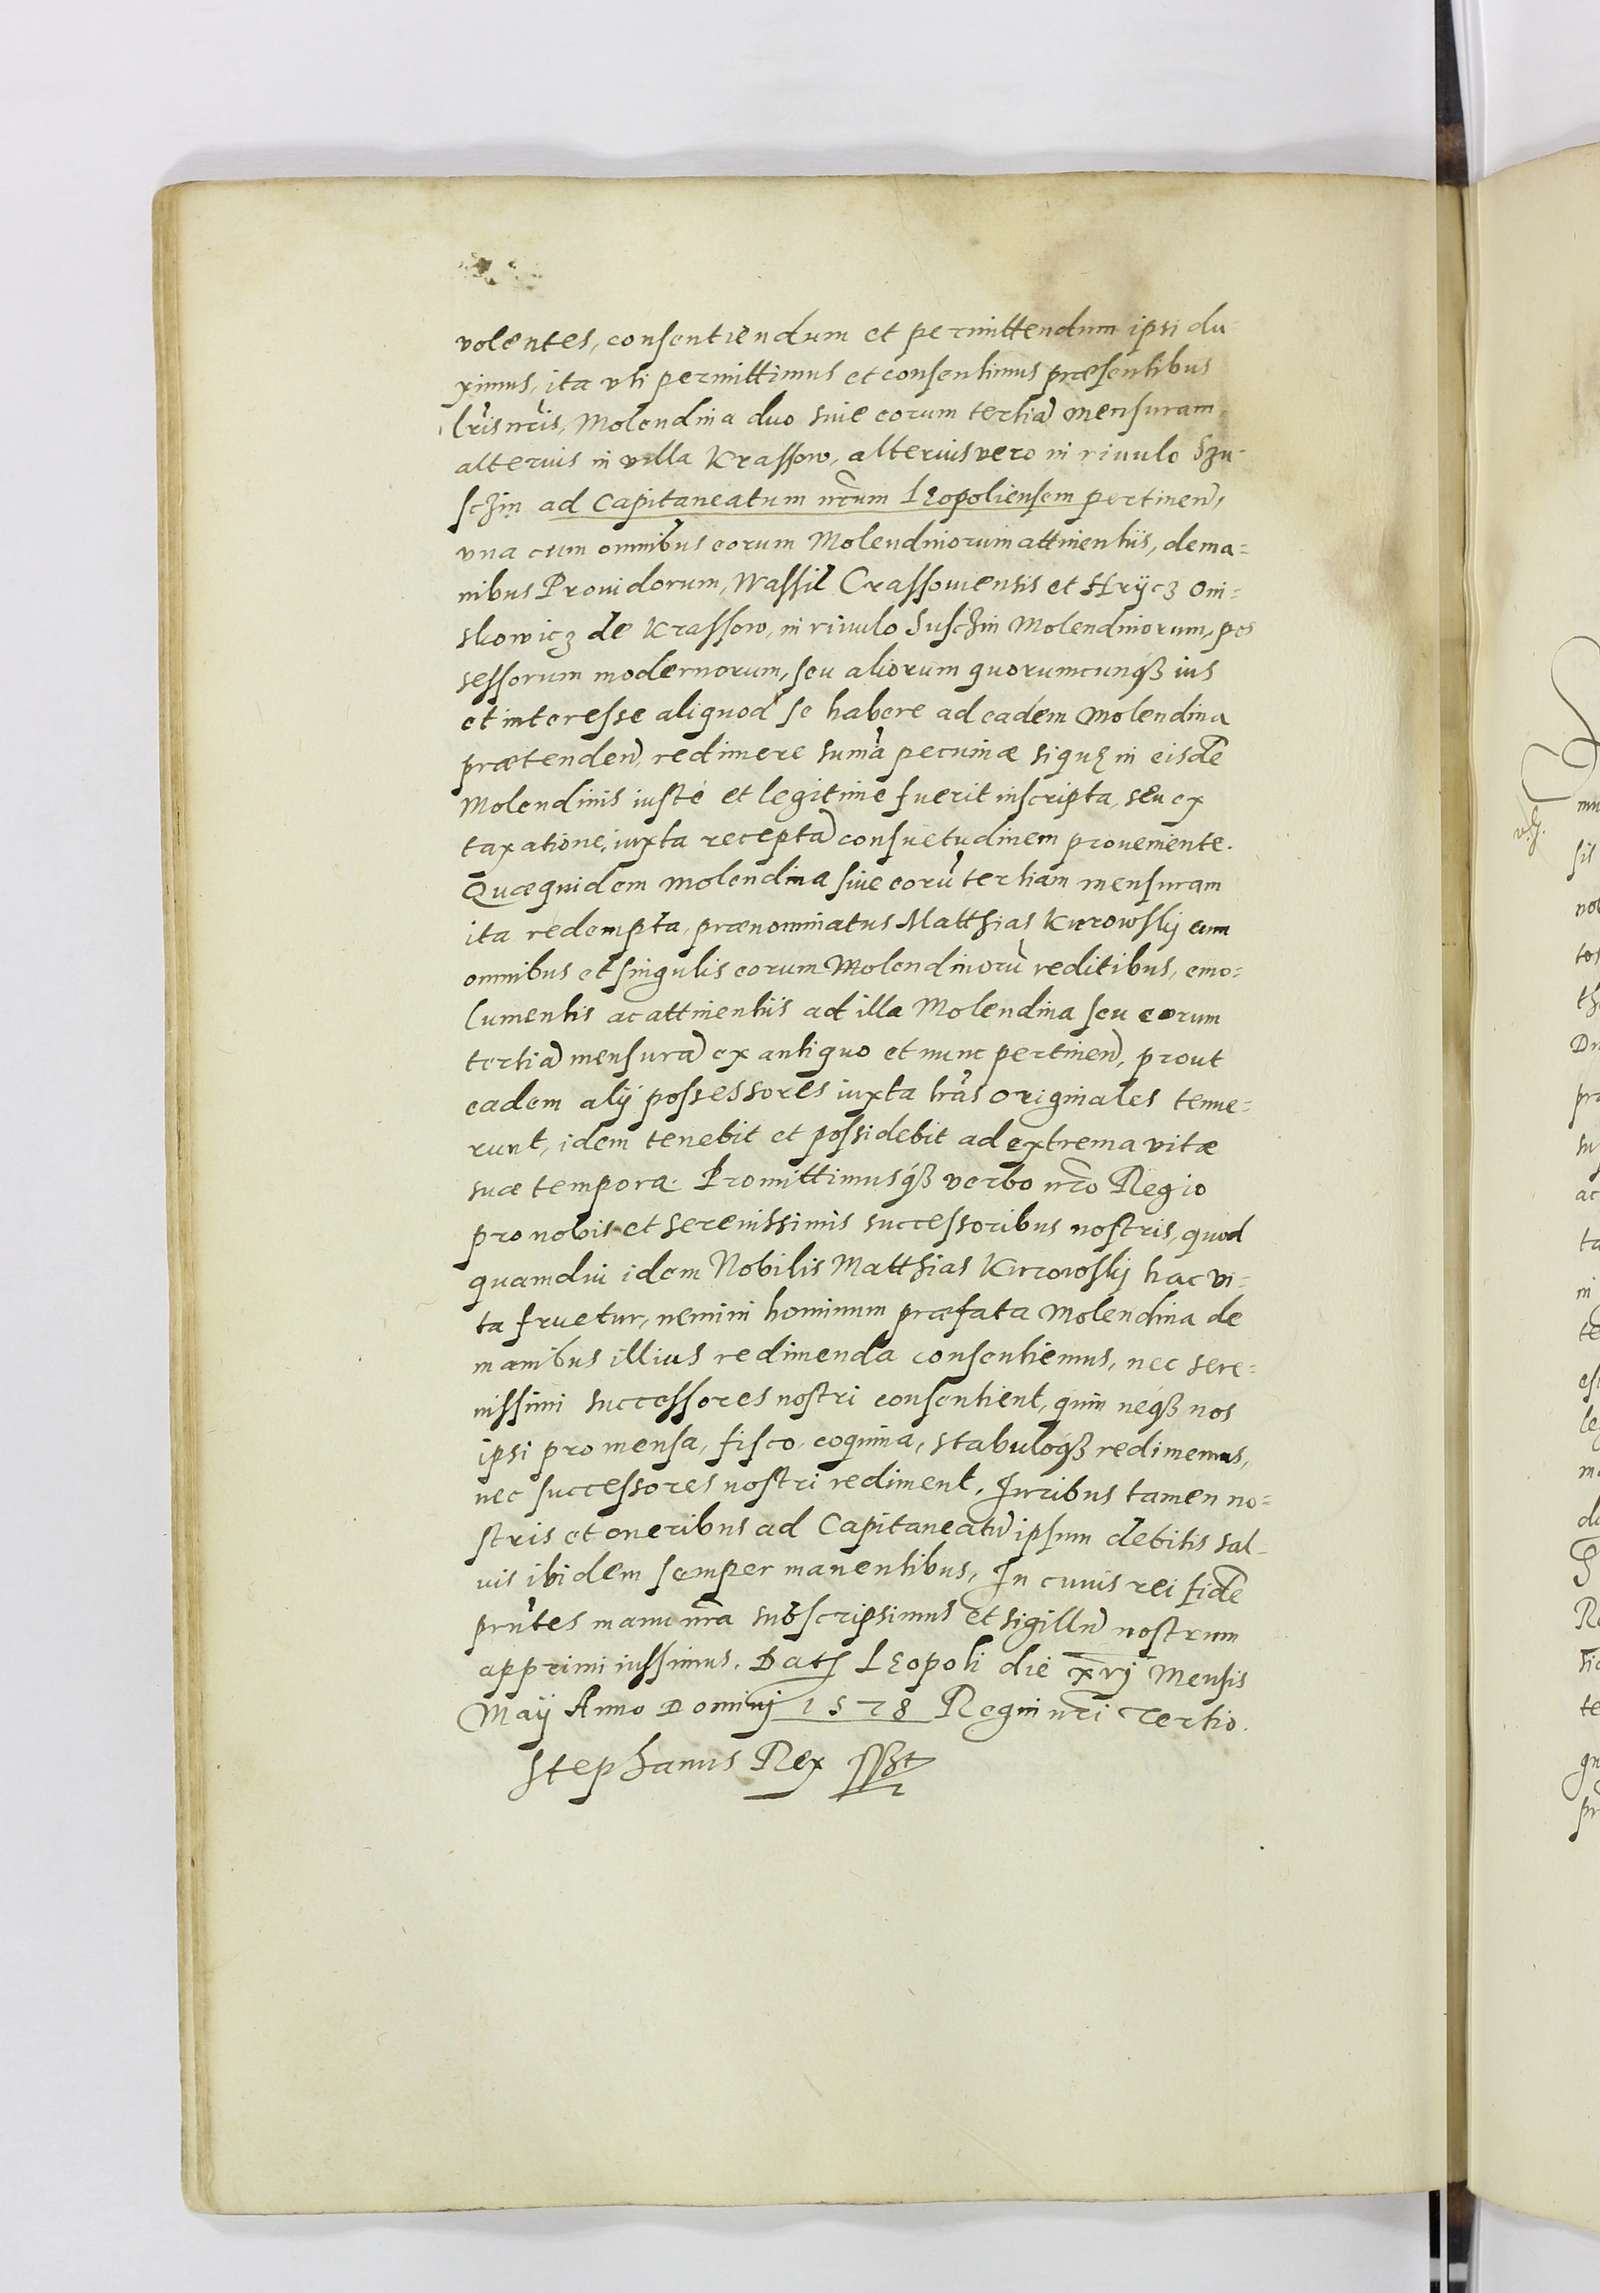 volentes, consentiendum et permittendum ipsi du-
ximus, ita vti permittimus et consentimus præsentibus
lris nris, Molendina duo siue eorum tertiã mensuram,
alterius in villa Krassow, alterius vero in riuulo Szu-
schin ad Capitaneatum nrum Leopoliensem pertinen,
vna cum omnibus eorum Molendinorum attinentiis, de ma=
nibus Prouidorum, Wassil Crassouiensis et Hrÿcz Oni=
skowicz de Krassow, in riuulo Suschin Molendinorum, pos
sessorum modernorum, seu aliorum quorumcunqß ius
et interesse aliquod se habere ad eadem Molendina
prætenden, redimere sumã pecuniæ si quę in eisdẽ
Molendinis iustè et legitime fuerit inscripta, seu ex
taxatione, iuxta receptã consuetudinem proueniente.
Quæquidem molendina siue eorũ tertiam mensuram
ita redempta, prænominatus Matthias Kurowskij cum
omnibus et singulis eorum Molendinorũ reditibus, emo=
lumentis ac attinentiis ad illa Molendina seu eorum
tertiã mensurã ex antiquo et nunc pertinen, prout
eadem alij possessores iuxta lras originales tenue=
runt, idem tenebit et possidebit ad extrema vitæ
suæ tempora. Promittimusqß verbo nro Regio
pro nobis et serenissimis successoribus nostris, quod
quamdiu idem Nobilis Matthias Kurowskij hac vi=
ta fruetur, nemini hominum præfata Molendina de
manibus illius redimenda consentiemus, nec sere=
nissimi successores nostri consentient, quin neqß nos
ipsi pro mensa, fisco, coquina, stabuloqß redimemus,
nec successores nostri rediment, Iuribus tamen no=
stris et oneribus ad Capitaneatũ ipsum debitis sal-
uis ibidem semper manentibus, In cuius rei fidẽ
prntes manu nra subscripsimus et sigillũ nostrum
apprimi iussimus. Dat Leopoli die xvj Mensis
Maÿ Anno Dominj 1578 Regni nri Tertio.
Stephanus Rex sst